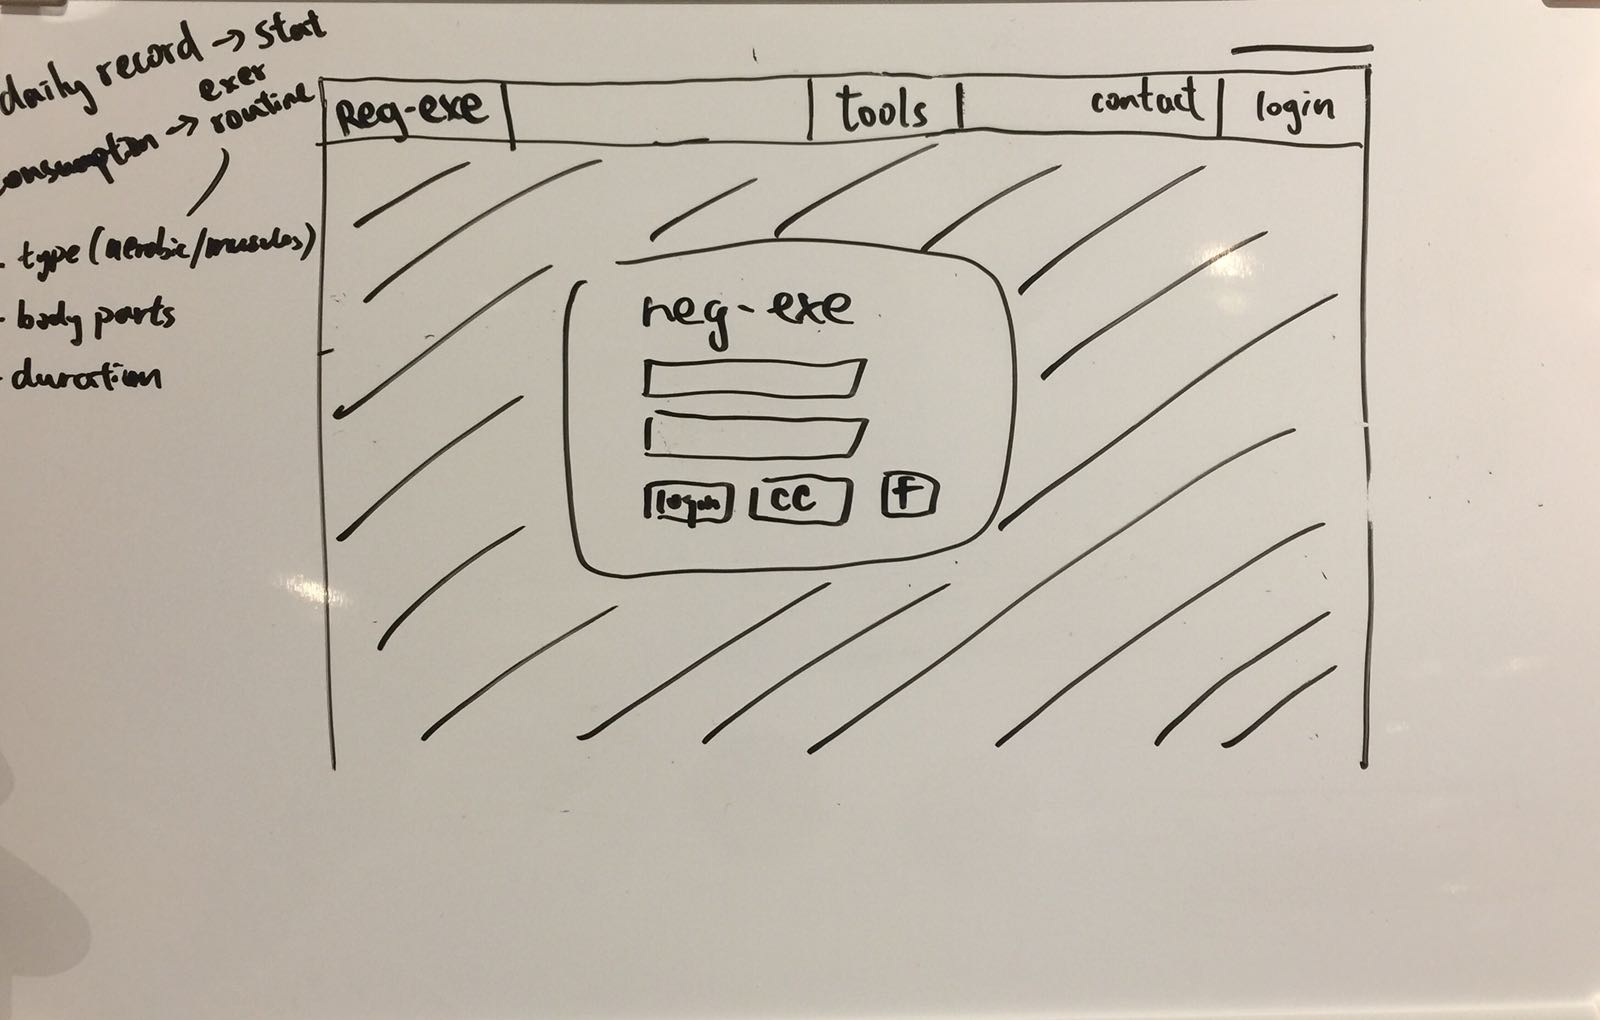 daily record → stat
consumption → exer routine
- type (aerobic/muscles)
- body parts
- duration
Reg-exe
tools
contact
login
reg-exe
login
CC
f